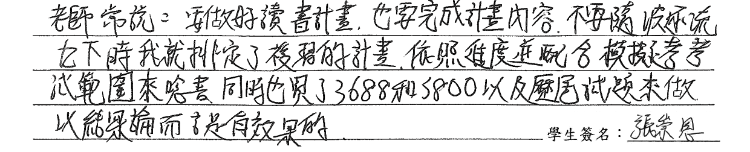 老師常說：要做好讀書計畫，也要完成計畫內容，不要隨波逐流
七下時我就排定了複習的計畫，依照進度並配合模擬考考
試範圍來唸書 同時也買了3688和5800以及歷屆試題來做
以結果論而言是有效果的． 學生簽名：張崇恩